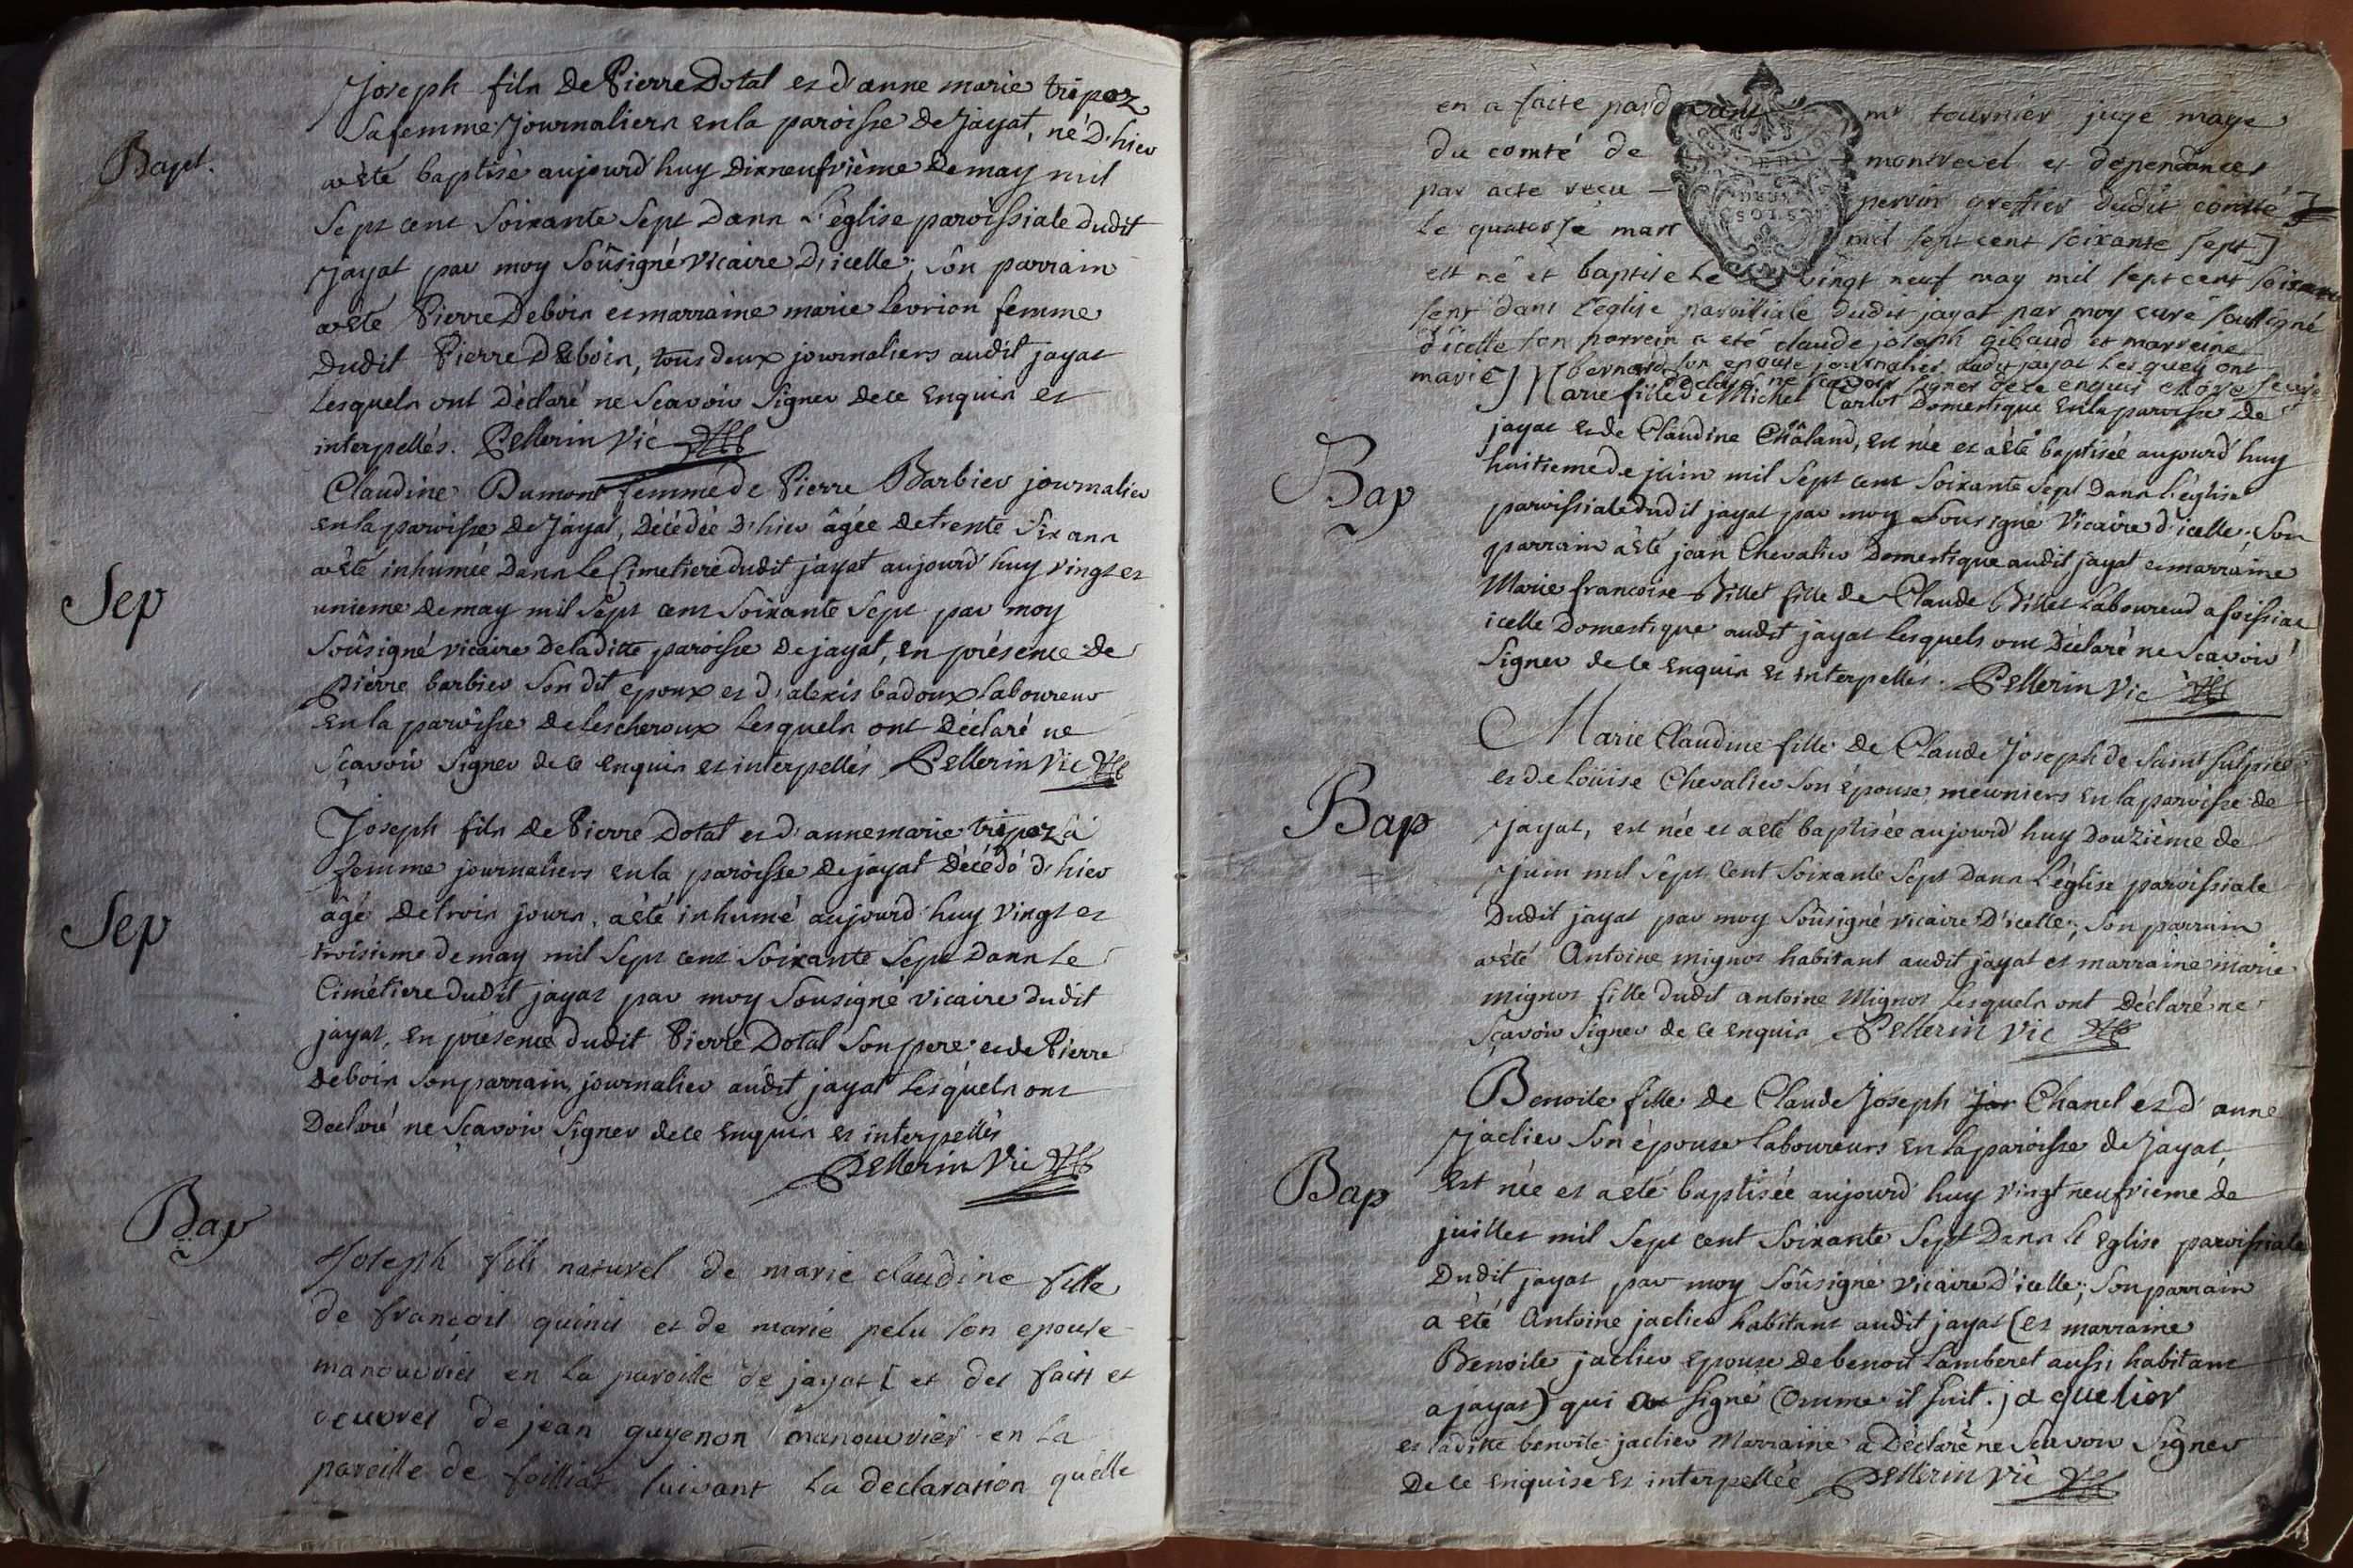 Bapt.
Joseph fils de Pierre Dotal et d'anne marie tripoz
sa femme journaliers en la paroisse de Jayat, né d'hier
a èté baptisé aujourd'huy dixneufvième de may mil
Sept cent Soixante Sept dans l'église paroissiale dudit
Jayat par moy Soûsigné vicaire d'icelle; Son parrain
a èté Pierre Debois et marraine marie levrion femme
dudit Pierre Debois, tous deux journaliers audit jayat
Lesquels ont Déclaré ne Scavoir Signer de ce Enquis et
interpellés. Pellerin Vic
Sep
Claudine Dumont femme de Pierre Barbier journalier
en la paroisse de Jayat, Décédée d'hier âgée de trente Six ans
a èté inhumée dans Le Cimetiere dudit jayat aujourd'huy vingt et
unieme de may mil Sept cent Soixante Sept par moy
Soûsigné vicaire de laditte paroisse de jayat, en présence de
Piérre barbier Son dit epoux et d'alexis badoux laboureur
en la paroisse de lescheroux Lesquels ont Déclaré ne
Sçavoir Signer de ce Enquis et interpellés Pellerin Vic
Sep
Joseph fils de Pierre Dotal et d'anne marie tripoz sa
femme journaliers en la paroisse de jayat Décédé d'hier
âgé de trois jours, a été inhumé aujourd'huy Vingt et
troisieme de may mil Sept cent Soixante Sept dans Le
Cimétiere dudit jayat par moy Sousigné vicaire dudit
jayat, en présence dudit Pierre Dotal Son pere et de Pierre
Debois Son parrain, journalier audit jayat Lesquels ont
Declaré ne Sçavoir Signer de ce Enquis et interpellés
Pellerin Vic
Bap
Joseph fils naturel de marie claudine fille
de françois quinis et de marie pelu son epouse
manouvrier en la paroisse de jayat [ et des faits et
oeuvres de jean guyenon manouvrier en la
paroisse de foissiat suivant la declaration quelle
en a faite pardevant mr tournier juge mage
du comté de montrevel et dependances
par acte reçu perrin greffier dudit comté
le quatorze mars mil sept cent soixante sept]
est né et baptisé le vingt neuf may mil sept cent soixante
sept dans l'eglise paroissiale dudit jayat par moy curé soussigné
d'icelle son parrein a eté claude joseph gibaud et marreine
marie bernard son epouse journalier dudit jayat lesquels ont
declaré ne scavoir signer de ce enquis
Bap
Marie fille de Michel Carlot Domestique en la paroisse de
jayat et de Claudine Châland, est née et a èté baptisée aujourd'huy
huitieme de juin mil Sept cent Soixante Sept dans l'église
paroissiale dudit jayat par moy Sousigné Vicaire d'icelle; Son
parrain a èté jean Chevalier Domestique audit jayat et marraine
Marie francoise Billet fille de Claude Billet Laboureur a foissiat
icelle Domestique audit jayat Lesquels ont Déclaré ne Scavoir
Signer de ce Enquis et interpellés. Pellerin Vic
Bap
Marie Claudine fille de Claude Joseph de Saint Sulpice
et de Loüise Chevalier Son épouse, meuniers en la paroisse de
Jayat, est née et a èté baptisée aujourd'huy Douzième de
Juin mil Sept Cent Soixante Sept dans l'église paroissiale
dudit jayat par moy Soûsigné vicaire d'icelle; Son parrain
a èté Antoine mignot habitant audit jayat et marraine marie
mignot fille dudit antoine Mignot Lesquels ont Déclaré ne
Sçavoir Signer de ce enquis Pellerin Vic
Bap
Benoite fille de Claude Joseph Chanel et d'anne
Jaclier Son épouse Laboureurs en la paroisse de Jayat,
Est née et a eté baptisée aujourd'huy vingt neufvieme de
juillet mil Sept cent Soixante Sept Dans l'Eglise paroissiale
Dudit jayat par moy Soûsigné vicaire d'icelle; Son parrain
a èté Antoine jaclier habitant audit jayat (et marraine
Benoite jaclier Epouse de benoit Lamberet aussi habitant
a jayat) qui a Signé Comme il Suit. jaquelier
et laditte benoite jaclier Marraine a Déclaré ne Scavoir Signer
De ce Enquise et interpellée Pellerin Vic